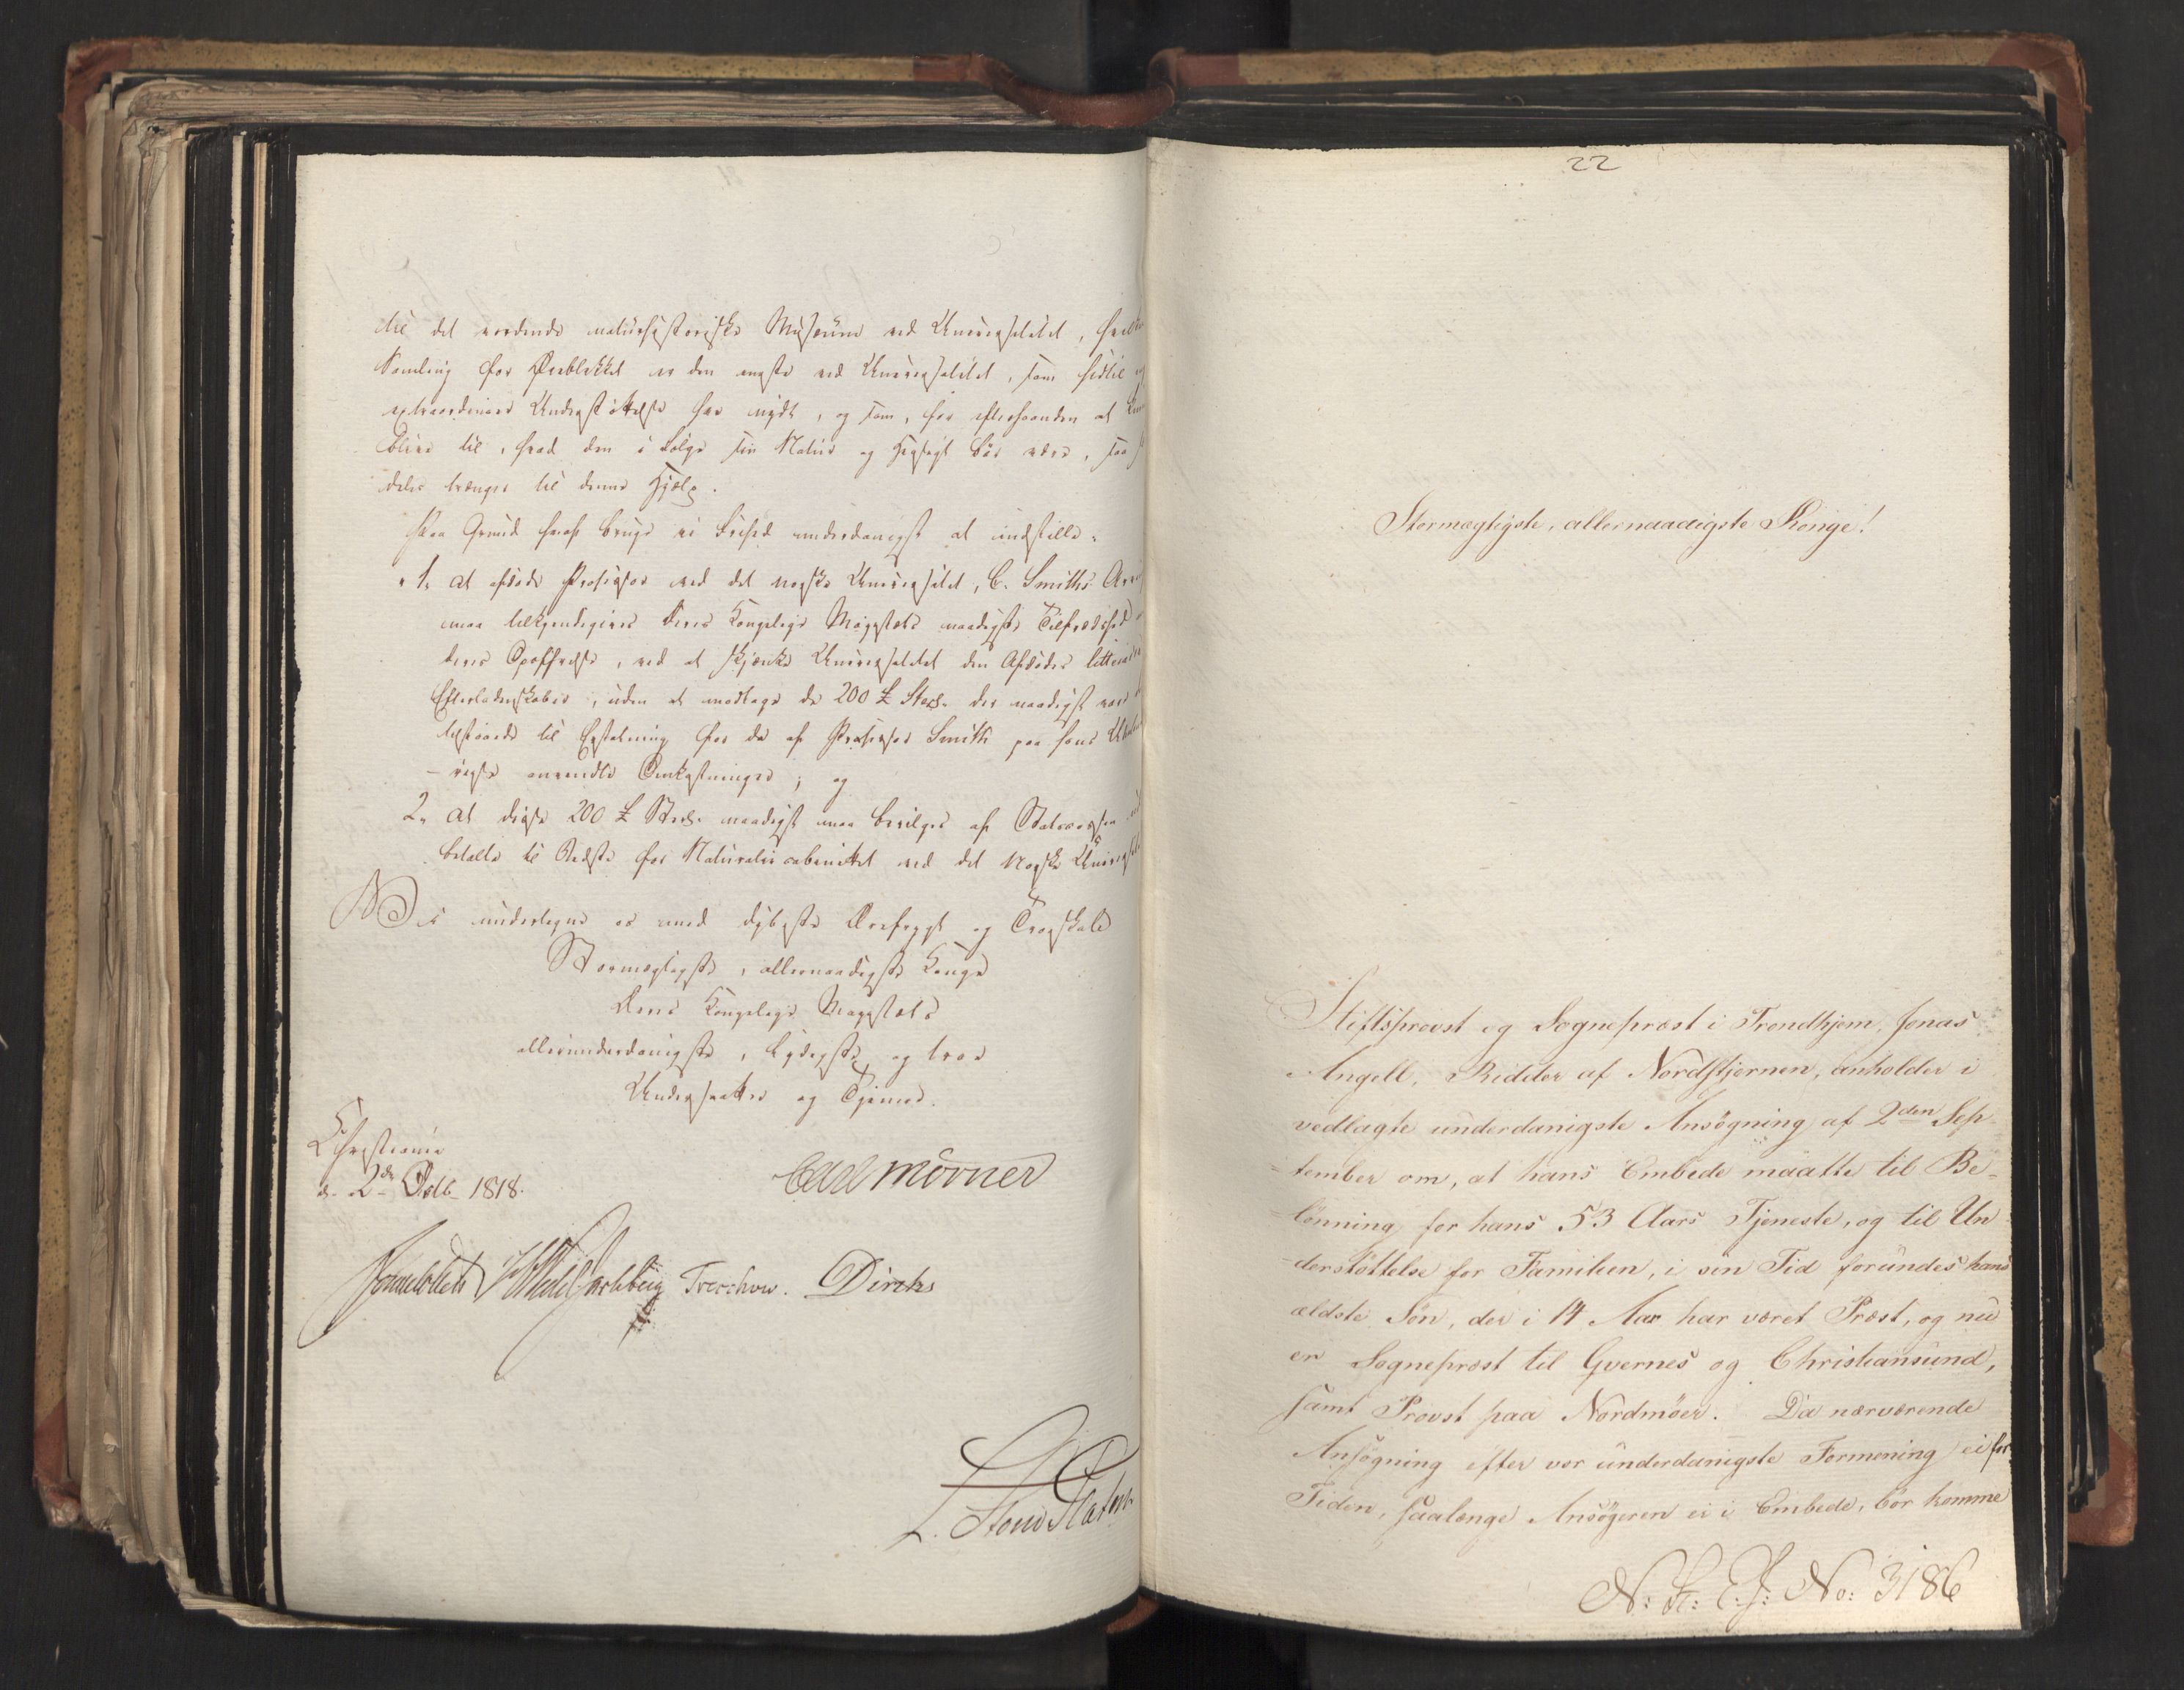 til det vordende naturhistoriske Museum ved Universitetet,
Samling for Øieblikket er den eneste ved Universitetet, som hidtil
extraordinair Understøttelse har nydt, og som, for efterhaanden at
blive til, hvad den i Følge sin Natur og Hensigt bør være, saa
deles trænger til denne Hjælp.
Paa Grund heraf bruge vi Frihed underdanigst at indstille:
1, at afdøde Professor ved det norske Universitet, C. Smiths
maa tilkjendegives Deres Kongelige Majestæts naadigste Tilfredshed
deres Opoffrelse, ved at skjænke Universitetet den Afdødes litteraire
Efterladenskaber, uden at modtage de 200 £ Sterl. der naadigst var
tilstaaede til Erstatning for de af Professor Smith paa hans
reise anvendte Omkostninger; og
2, at disse 200 £ Sterl. naadigst maa bevilges af Statscassen
betalte til Bedste for Naturaliecabinettet ved det norske
Vi undertegne os med dybeste Ærefrygt og Troeskab
Stormægtigste, allernaadigste Konge
Deres Kongelige Majestæts
allerunderdanigste, lydigste og troe
Undersaatter og Tjenere.
Christiania
d. 2de Octb. 1818.
Carl Mörner
Sommerhielm Treschow. Diriks
L. Stoud Platou
22
Stormægtigste, allernaadigste Konge!
Stiftsprovst og Sognepræst i Trondhjem, Jonas
Angell, Ridder af Nordstjernen, anholder i
vedlagte underdanigste Ansøgning af 2den Sep-
tember om, at hans Embede maatte til Be-
lønning for hans 53 Aars Tjeneste, og til Un-
derstøttelse for Familien, i sin Tid forundes hans
ældste Søn, der i 14 Aar har været Præst, og nu
er Sognepræst til Qvernes og Christiansund,
samt Provst paa Nordmøer. Da nærværende
Ansøgning efter vor underdanigste Formening ei for
Tiden, saalænge Ansøgeren er i Embede, bør komme
No: 3186